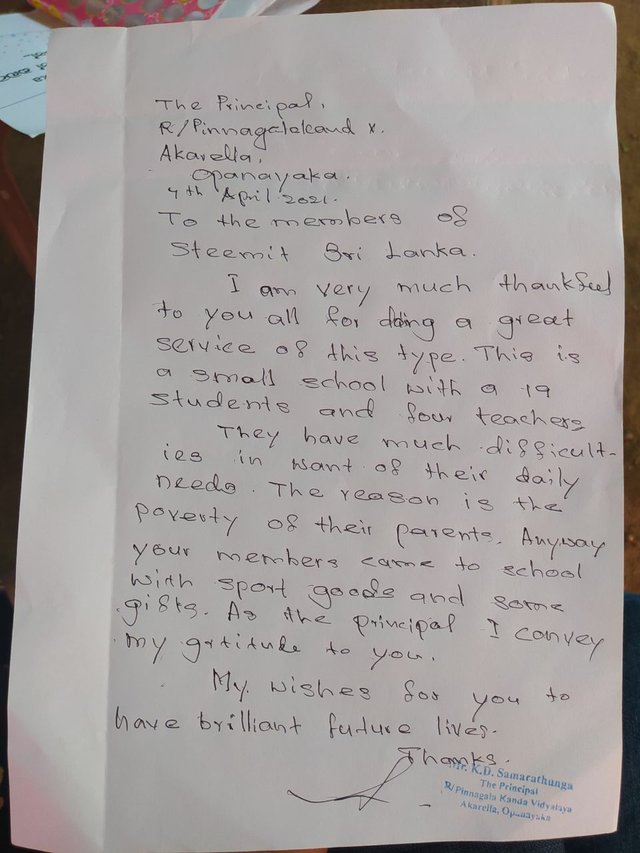 The Principal,
R/Pinnagalakand v.
Akarella,
Opanayaka.
7th April 2021.
To the members of
Steemit Sri Lanka.
I am very much thankful
to you all for doing a great
service of this type. This is
a small school with a 19
students and four teachers
They have much difficult-
ies in want of their daily
needs. The reason is the
poverty of their parents. Anyway
your members came to school
with sport goods and some
gifts. As the principal I convey
my grtitude to you.
My wishes for you to
have brilliant future lives.
Thanks.
Mr. K.D. Samarathunga
The Principal
R/Pinnagala Kanda Vidyalaya
Akarella, Opanayaka